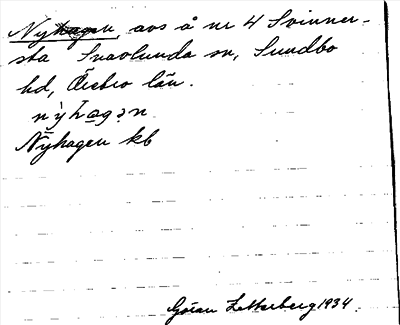 Nyhagen, avs å nr 4 Svinner-
sta Svavlunda sn, Sundbo
hd, Örebro län.
nỳhagən.
Nȳhagen kb
Göran Zetterberg 1934.